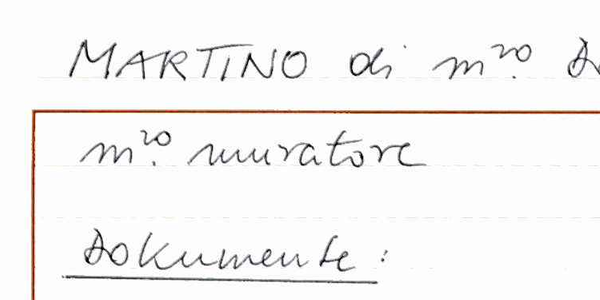 MARTINO di m.ro
m.ro muratore
Dokumente: